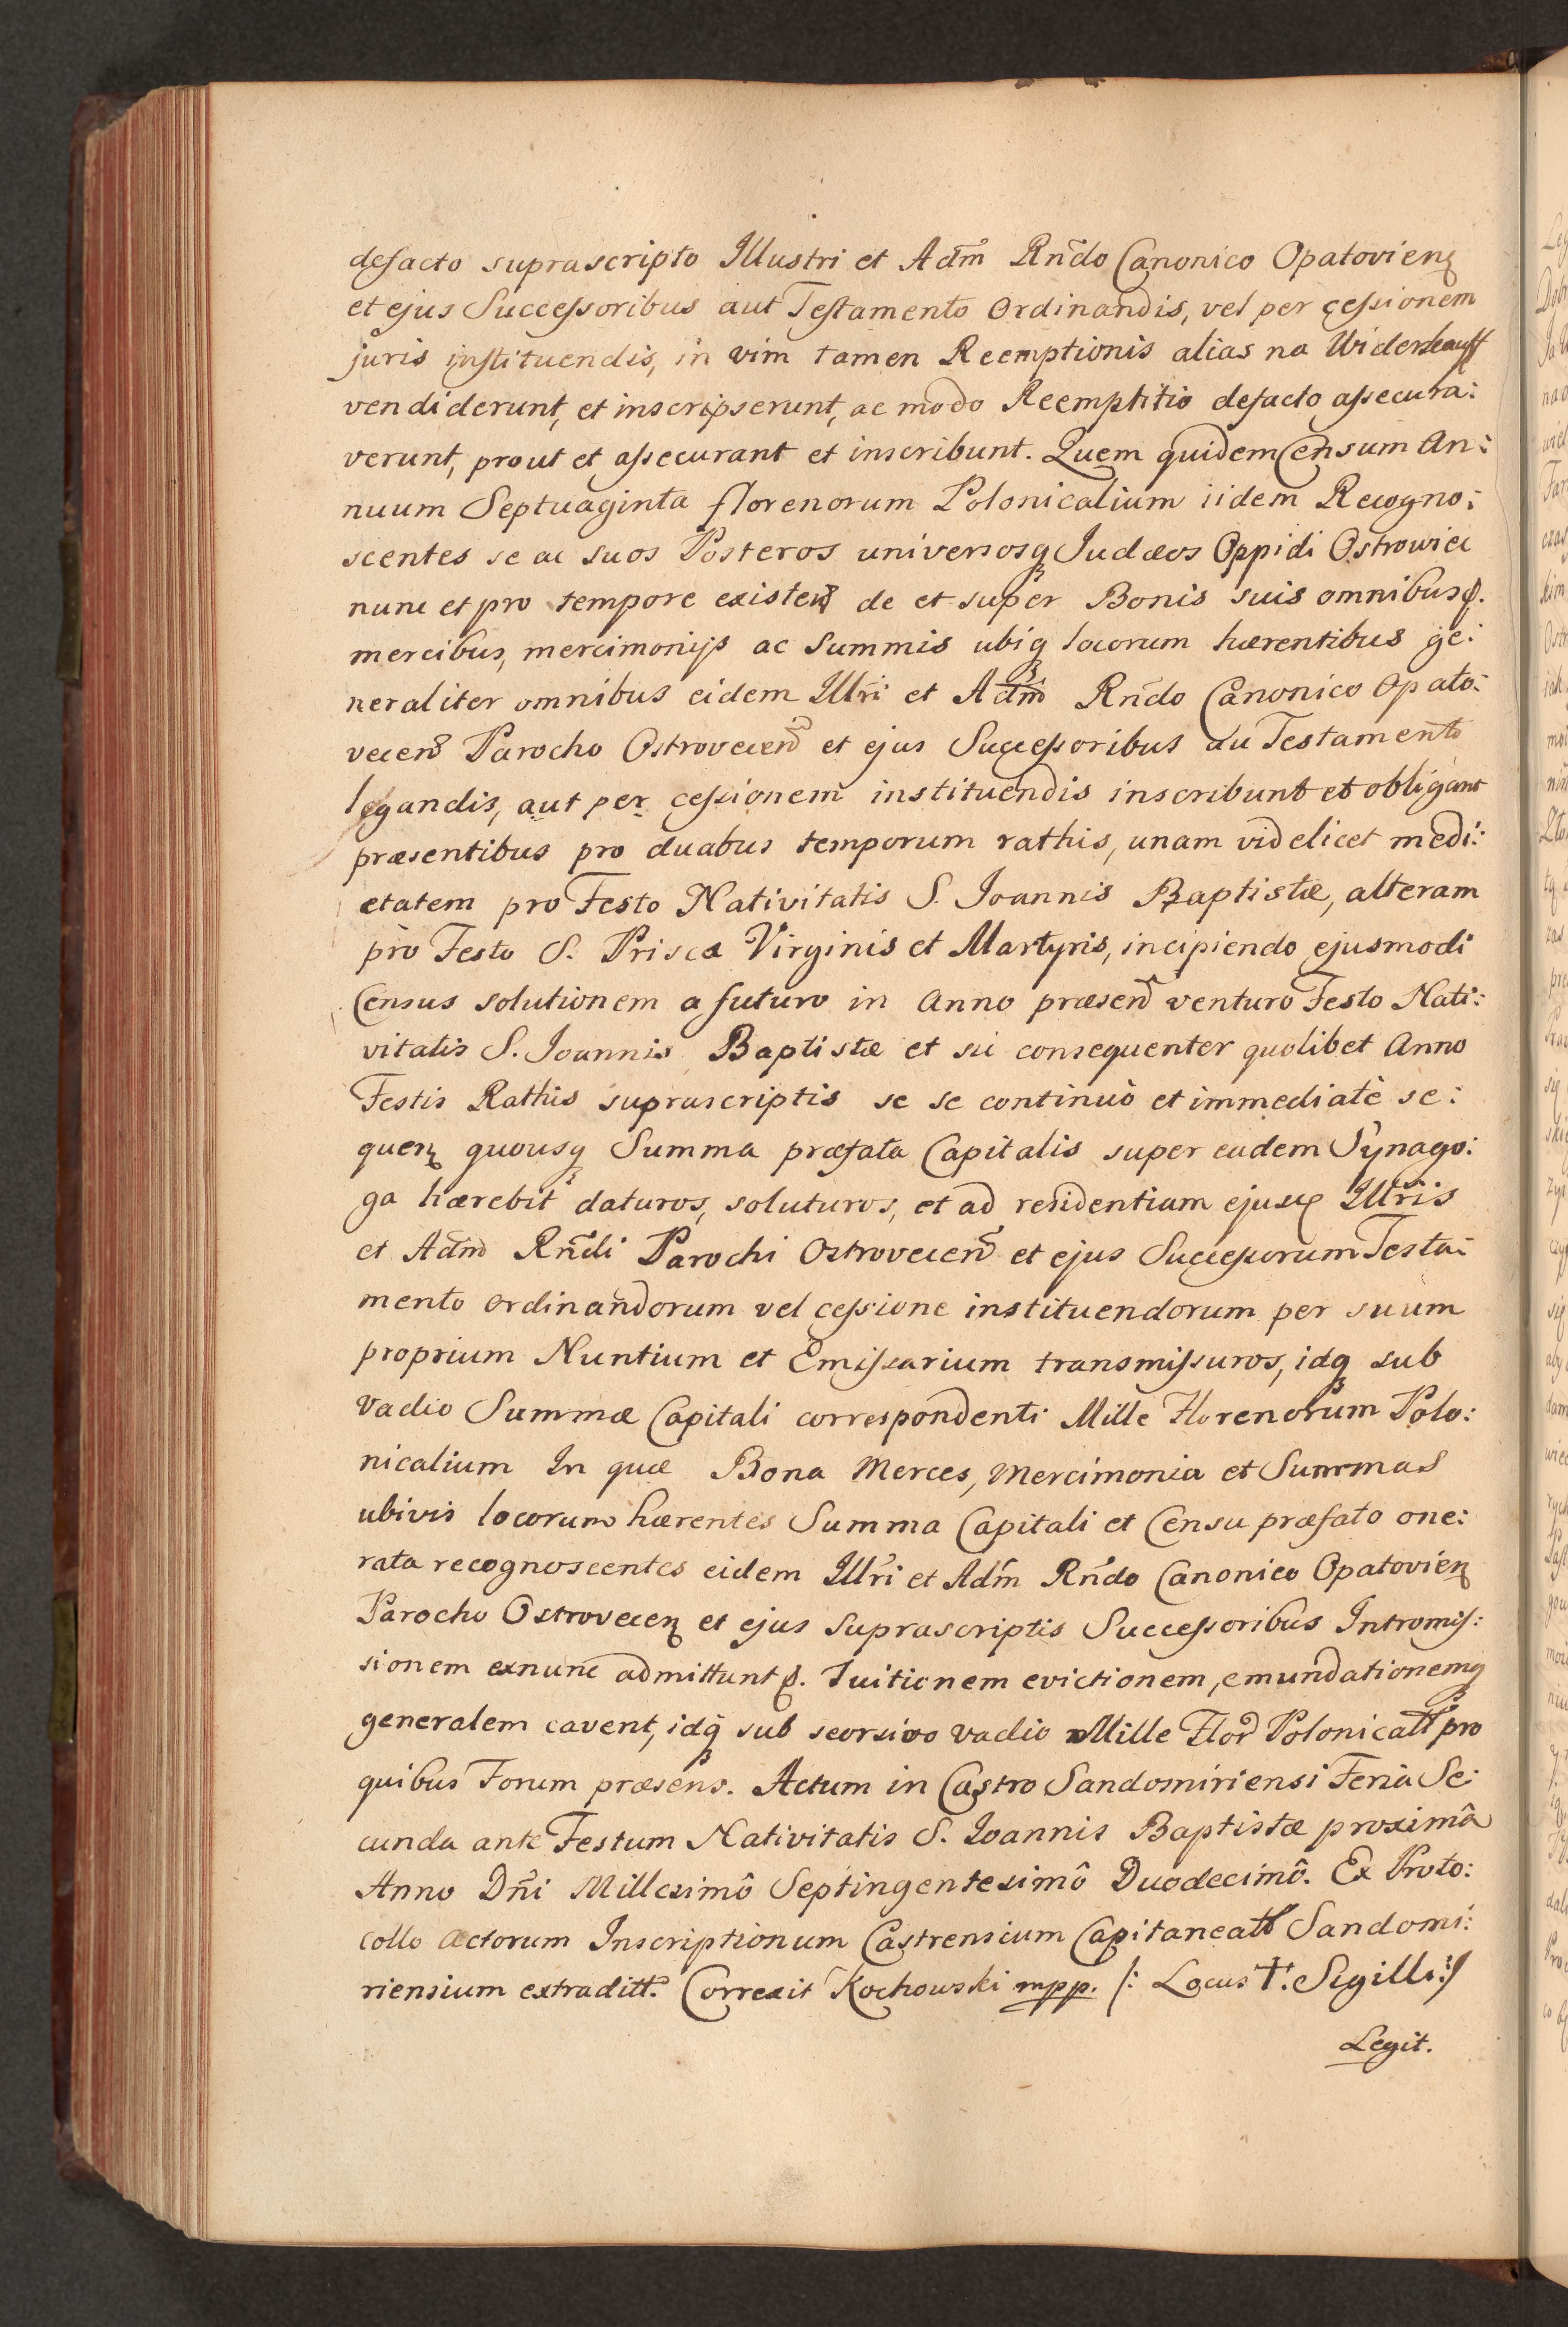 defacto suprascripto Illustri et Adm̃ Rñdo Canonico Opatovienȝ
et ejus Successoribus aut Testamento Ordinandis, vel per cessionem
juris instituendis, in vim tamen Reemptionis alias na Widerkauff
vendiderunt, et inscripserunt, ac modo Reemptitio defacto assecura:
verunt, prout et assecurant et inscribunt. Quem quidem Censum An:
nuum Septuaginta florenorum Polonicalium iidem Recogno:
scentes se ac suos Posteros universosqȝ Judæos Oppidi Ostrowiec
nunc et pro tempore existen̄ de et super Bonis suis omnibusqȝ.
mercibus, mercimonijs ac Summis ubiqȝ locorum hærentibus ge:
neraliter omnibus eidem Illr̃i et Adm̃ Rñdo Canonico Opato:
vecen̄ Parocho Ostrovecen̄ et ejus Successoribus au Testamento
legandis, aut per cessionem instituendis inscribunt et obligant
præsentibus pro duabus temporum rathis, unam videlicet medi:
etatem pro Festo Nativitatis S. Joannis Baptistæ, alteram
pro Festo S. Prisca Virginis et Martyris, incipiendo ejusmodi
Census solutionem a futuro in Anno præsen̄ venturo Festo Nati:
vitatis S. Joannis Baptistæ et sic consequenter quolibet Anno
Festis Rathis suprascriptis se se continuò et immediatè se:
quenȝ quousqȝ Summa præfata Capitalis super eadem Synago:
ga hærebit daturos, soluturos, et ad residentiam ejusȩ Illr̃is
et Adm̃ Rñdi Parochi Ostrovecen̄ et ejus Successorum Testa:
mento ordinandorum vel cessione instituendorum per suum
proprium Nuntium et Emissarium transmissuros, idqȝ sub
vadio Summæ Capitali correspondenti Mille Florenorum Polo:
nicalium In quæ Bona Merces, Mercimonia et Summas
ubivis locorum hærentes Summa Capitali et Censu præfato one:
rata recognoscentes eidem Illr̃i et Adm̃ Rñdo Canonico Opatovienȝ
Parocho Ostrovecenȝ et ejus Suprascriptis Successoribus Intromis:
sionem exnunc admittunt ꝑ. Tuitionem evictionem, emundationemqȝ
generalem cavent, idqȝ sub seorsivo vadio Mille Flor̄ Polonicall̄ pro
quibus Forum præsens. Actum in Castro Sandomiriensi Feria Se:
cunda ante Festum Nativitatis S. Joannis Baptistæ proximâ
Anno Dñi Millesimô Septingentesimô Duodecimô. Ex Proto:
collo Actorum Inscriptionum Castrensium Capitaneatt Sandomi:
riensium extraditt. Correxit Kochowski mpp. /: Locus †. Sigilli:/
Legit.